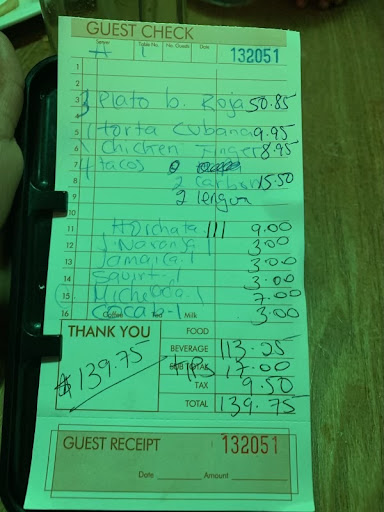 GUEST CHECK
Server Table No. No. Guests Date
A 1 132051
1
2
3 3 Plato b. Roja 50.85
4
5 1 torta Cubana 9.95
6 1 Chicken finger 8.95
7 4 tacos
8 2 carbon 15.50
9 2 lengua
10
11 Horchata III 9.00
12 J. Naranja 1 3.00
13 Jamaica-1 3.00
14 Squirt-1 3.00
15 Michelada-1 7.00
16 1 3.00
Coffee Tea Milk
THANK YOU
$139.75
FOOD
BEVERAGE 113.25
SUB TOTAL tips 17.00
TAX 9.50
TOTAL 139.75
GUEST RECEIPT 132051
Date Amount